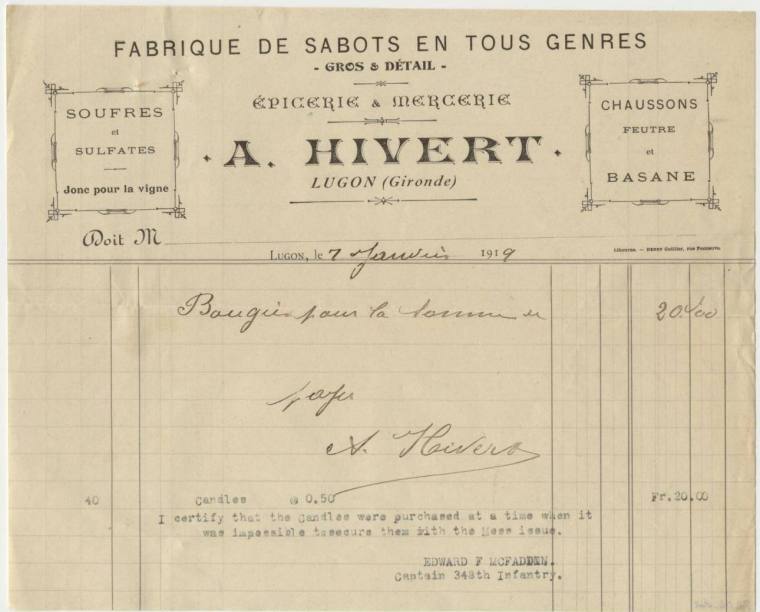 FABRIQUE DE SABOTS EN TOUS GENRES
- GROS & DÉTAIL -
ÉPICERIE & MERCERIE
A. HIVERT
LUGON (Gironde)
SOUFRES
et
SULFATES
Jonc pour la vigne
CHAUSSONS
FEUTRE
et
BASANE
Doit M
LUGON, le 7 Janvier 1919
Libourne. — HENRY Guillier, rue Fonneuve.
Bougies pour la somme de 20.00
payé
A. Hivert
40 Candles @ 0.50 Fr.20.00
I certify that the Candles were purchased at a time when it
was impossible tosecure them with the Mess issue.
EDWARD F MCFADDEN.
Captain 348th Infantry.